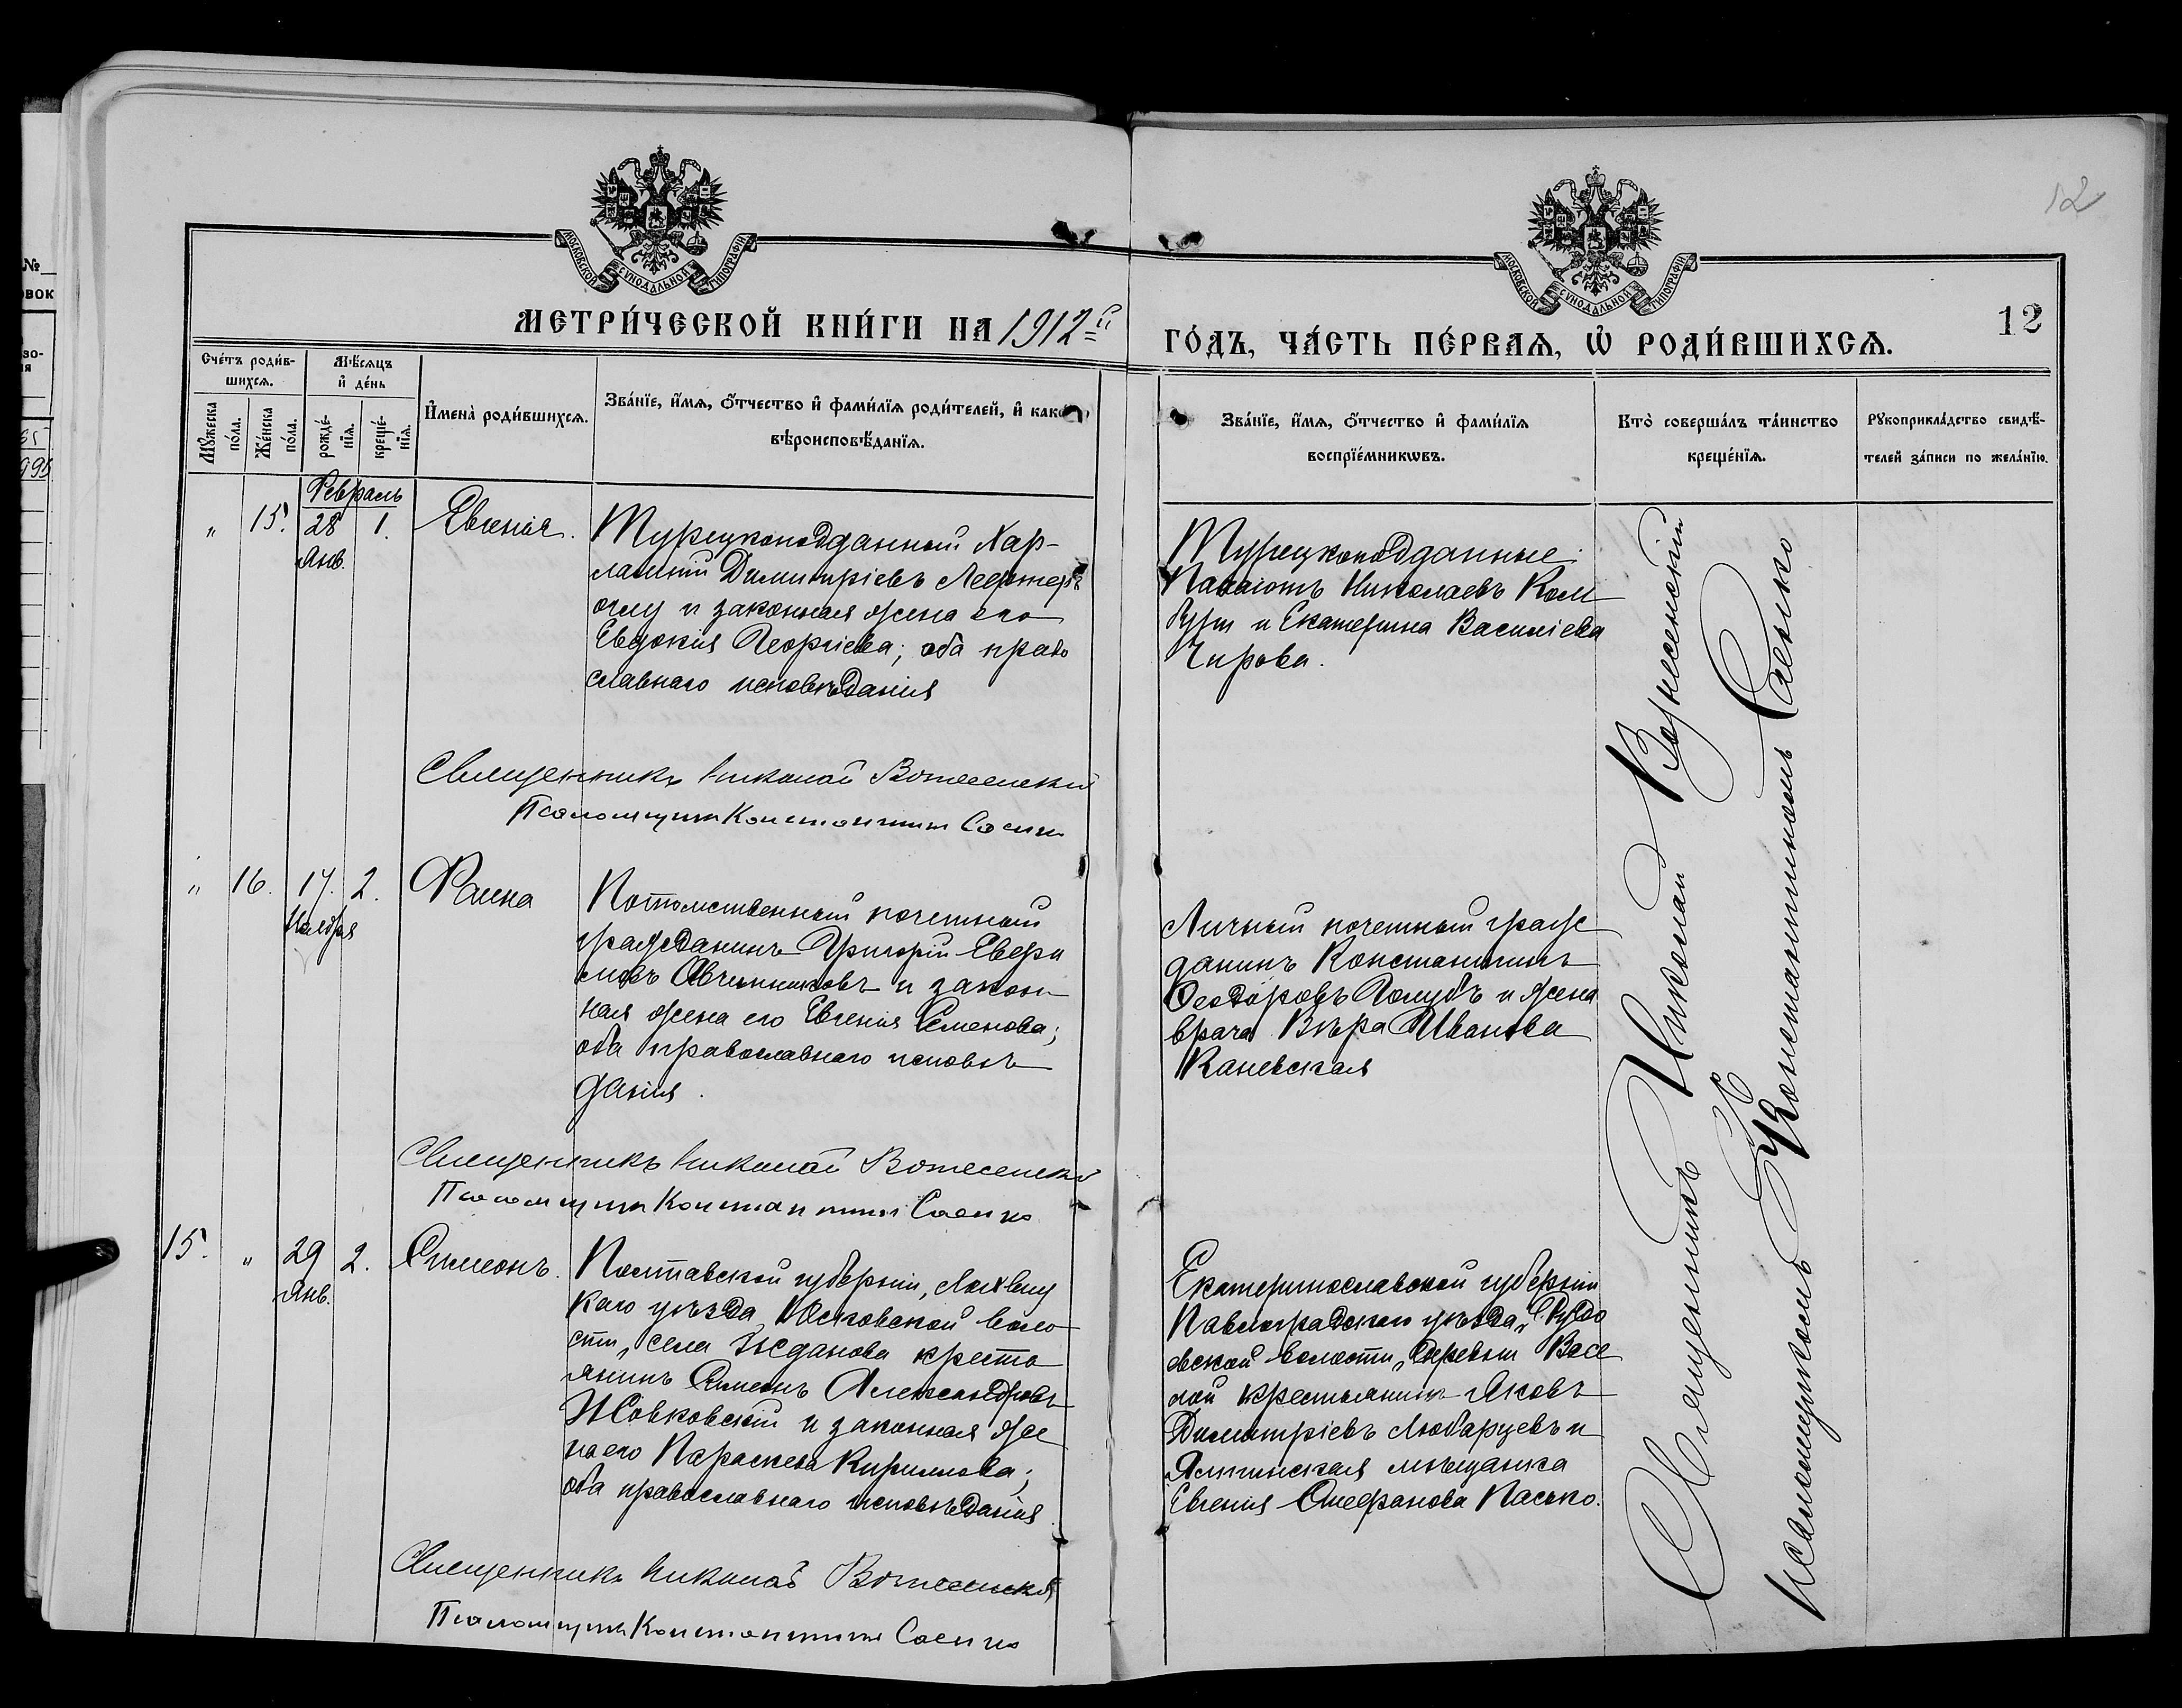 12
МОСКОВСКОЙ СУНОДАЛЬНОЙ ТИПОГРАФІИ
МОСКОВСКОЙ СУНОДАЛЬНОЙ ТИПОГРАФІИ
МЕТРИ́ЧЕСКОЙ КНИ́ГИ НА 1912-й
ГО́ДЪ, ЧА́СТЬ ПЕ́РВАЯ, Ѡ РОДИ́ВШИХСЯ.
12
Счéтъ роди́в-
шихся.
Мужеска
пóла.
Жéнска
пóла.
Мѣ́сяцъ
и дéнь
рождé-
нїя.
крещé-
нїя.
Именà роди́вшихся.
Звáнїе, и́мя, óтчество и фами́лїя роди́телей, и какого
вѣроисповѣ́данїя.
Звáнїе, и́мя, óтчество и фами́лїя
воспрїéмникωвъ.
Ктò совершáлъ тáинство
крещéнїя.
Рукоприклáдство свидѣ́-
телей зáписи по желáнїю.
Февраль
" 15. 28 1. Евгенія.
Янв.
Турецкоподданный Хар-
лампій Димитріевъ
оглу и законная жена его
Евдокія Георгіева; оба право
славнаго исповѣданія
Турецкоподданные
Панаіотъ Николаевъ
и Екатерина Василіева
Чирова.
Священникъ Николай Вознесенскій
Псаломщикъ Константинъ Саенко
" 16. 17. 2. Фаина
Ноября
Потомственный почетный
гражданинъ Григорій
Овчинниковъ и закон
ная жена его Евгенія Семенова;
оба православнаго исповѣ
данія.
Личный почетный граж
данинъ Константинъ
Ѳеодоровъ Голубъ и жена
врача Вѣра Иванова
Каневская
Священникъ Николай Вознесенскій
Псаломщикъ Константинъ Саенко
15. " 29 2. Симеонъ.
Янв.
Полтавской губерніи, Лохвиц
каго уѣзда воло
сти, села Жданова кресть
янинъ Симеонъ Александровъ
Жовковскій и законная же
на его Параскева Кириллова;
оба православнаго исповѣданія.
Екатеринославской губерніи
Павлоградскаго уѣзда,
евской волости, деревни Весе
лой крестьянинъ Яковъ
Димитріевъ Любарцевъ и
Ялтинская мѣщанка
Евгенія Стефанова Пасько.
Священникъ Николай Вознесенскій
Псаломщикъ Константинъ Саенко
Священникъ Николай Вознесенскій
съ
Псаломщикомъ Константиномъ Саенко